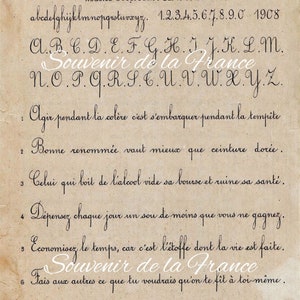 abcdefghijklmnopqrstuvwxyz. 1.2.3.4.5.6.7.8.9.0 1908
A.B.C.D.E.F.G.H.I.J.K.L.M.
Souvenir de la France
N.O.P.Q.R.S.T.U.V.W.X.Y.Z.
1 Agir pendant la colère c'est s'embarquer pendant la tempête
2 Bonne renommée vaut mieux que ceinture dorée.
3 Celui qui boit de l'alcool vide sa bourse et ruine sa santé.
4 Dépensez chaque jour un sou de moins que vous ne gagnez.
5 Économisez le temps, car c'est l'étoffe dont la vie est faite.
Souvenir de la France
6 Fais aux autres ce que tu voudrais qu'on te fît à toi-même.